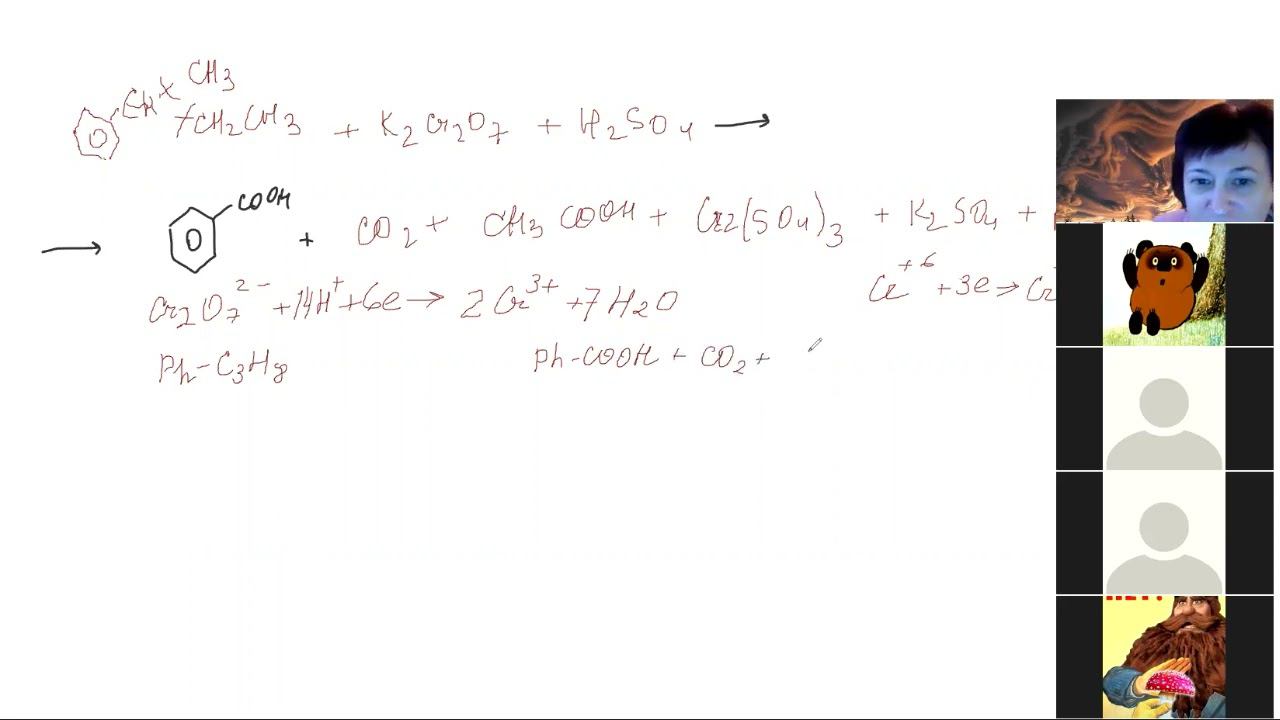 CH CH3
CH2CH3 + K2Cr2O7 + H2SO4 →
→ COOH + CO2 + CH3COOH + Cr2(SO4)3 + K2SO4 +
Cr2O7 2- + 14H+ + 6e → 2Cr3+ + 7H2O
Cr+6 + 3e → Cr
Ph-C3H8 Ph-COOH + CO2 +